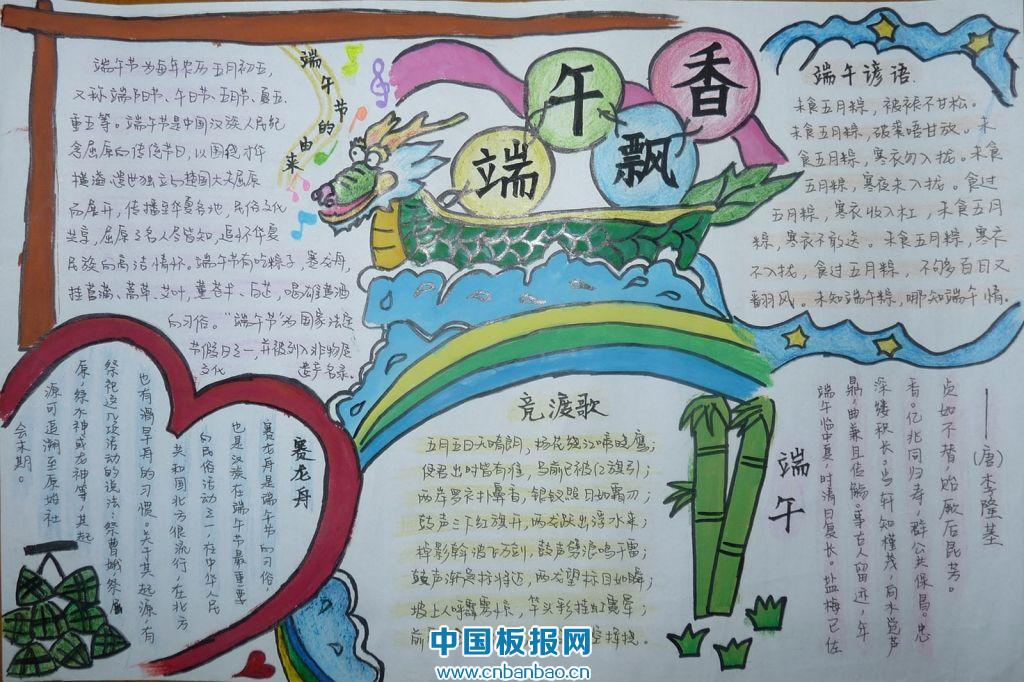 端午飘香
端午节的由来
端午节为每年农历五月初五,
又称端阳节、午日节、五月节、夏五、
重五等。端午节是中国汉族人民纪
念屈原的传统节日,以围绕才华
横溢、遗世独立的楚国大夫屈原
而展开,传播至华夏各地,民俗文化
共享,屈原之名人尽皆知,追怀华夏
民族的高洁情怀。端午节有吃粽子,赛龙舟,
挂菖蒲、蒿草、艾叶,薰苍术、白芷,喝雄黄酒
的习俗。“端午节”为国家法定
节假日之一,并被列入非物质
文化遗产名录。
端午谚语
未食五月粽,被褛不甘松。
未食五月粽,破裘唔甘放。未
食五月粽,寒衣勿入拢。未食
五月粽,寒夜未入拢。食过
五月粽,寒衣收入杠,未食五月
粽,寒衣不敢送。未食五月粽,寒衣
不入拢,食过五月粽,不够百日又
翻风。未知端午粽,哪知端午情。
赛龙舟
赛龙舟是端午节的习俗,
也是汉族在端午节最重要
的民俗活动之一,在中华人民
共和国北方很流行,在北方
也有滑旱舟的习惯。关于其起源,有
祭祀这几项活动的说法,祭曹娥,祭屈
原,祭水神或龙神等,其起
源可追溯至原始社
会末期。
竞渡歌
五月五日天晴朗,杨花绕江啼晓鹰;
使君出时皆有准,马前已被红旗引;
两岸罗衣扑鼻香,银钗照日如霜刃;
鼓声三下红旗开,两龙跃出浮水来;
棹影斡波飞万剑,鼓声劈浪鸣千雷;
鼓声渐急标将近,两龙望标目如瞬;
坡上人呼霹雳惊,竿头彩挂虹霓晕;
前
挥挠。
端午
——(唐)李隆基
端午临中夏,时清日复长。盐梅已佐
鼎,曲蘖且传觞。事古人留迹,年
深缕积长。当轩知槿茂,向水觉芦
香。亿兆同归寿,群公共保昌。忠
贞如不替,贻厥后昆芳。
中国板报网
www.cnbanbao.cn